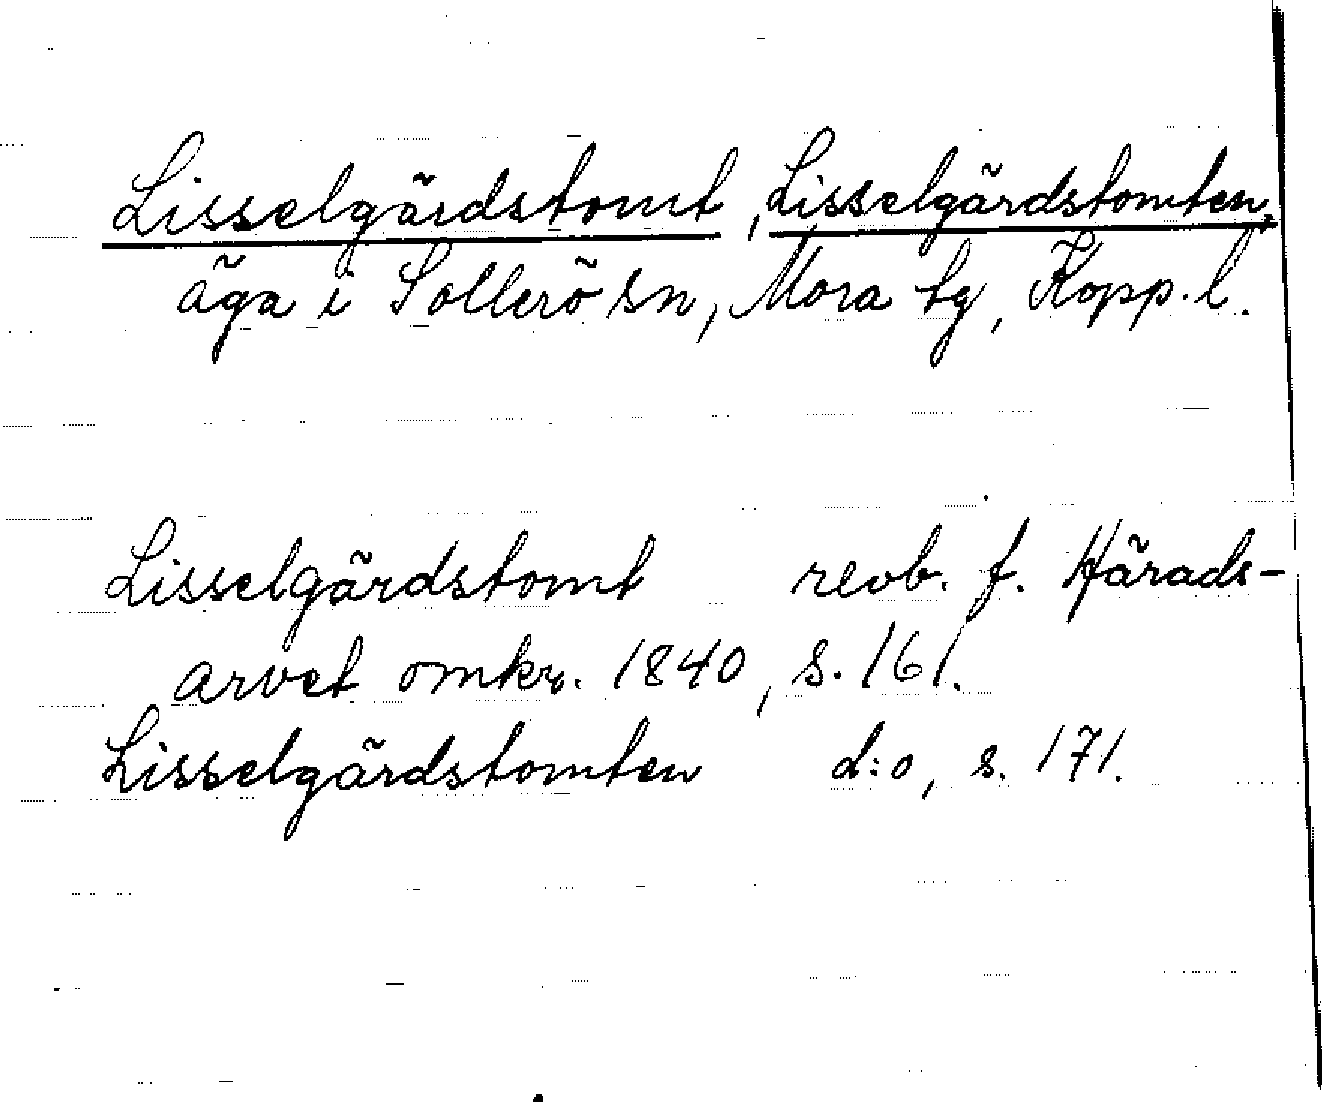 Lisselgärdstomt, Lisselgärdstomten,
äga i Sollerö sn, Mora tg, Kopp. l.
Lisselgärdstomt revb. f. Härads-
arvet omkr. 1840, s. 161.
Lisselgärdstomten d:o, s. 171.